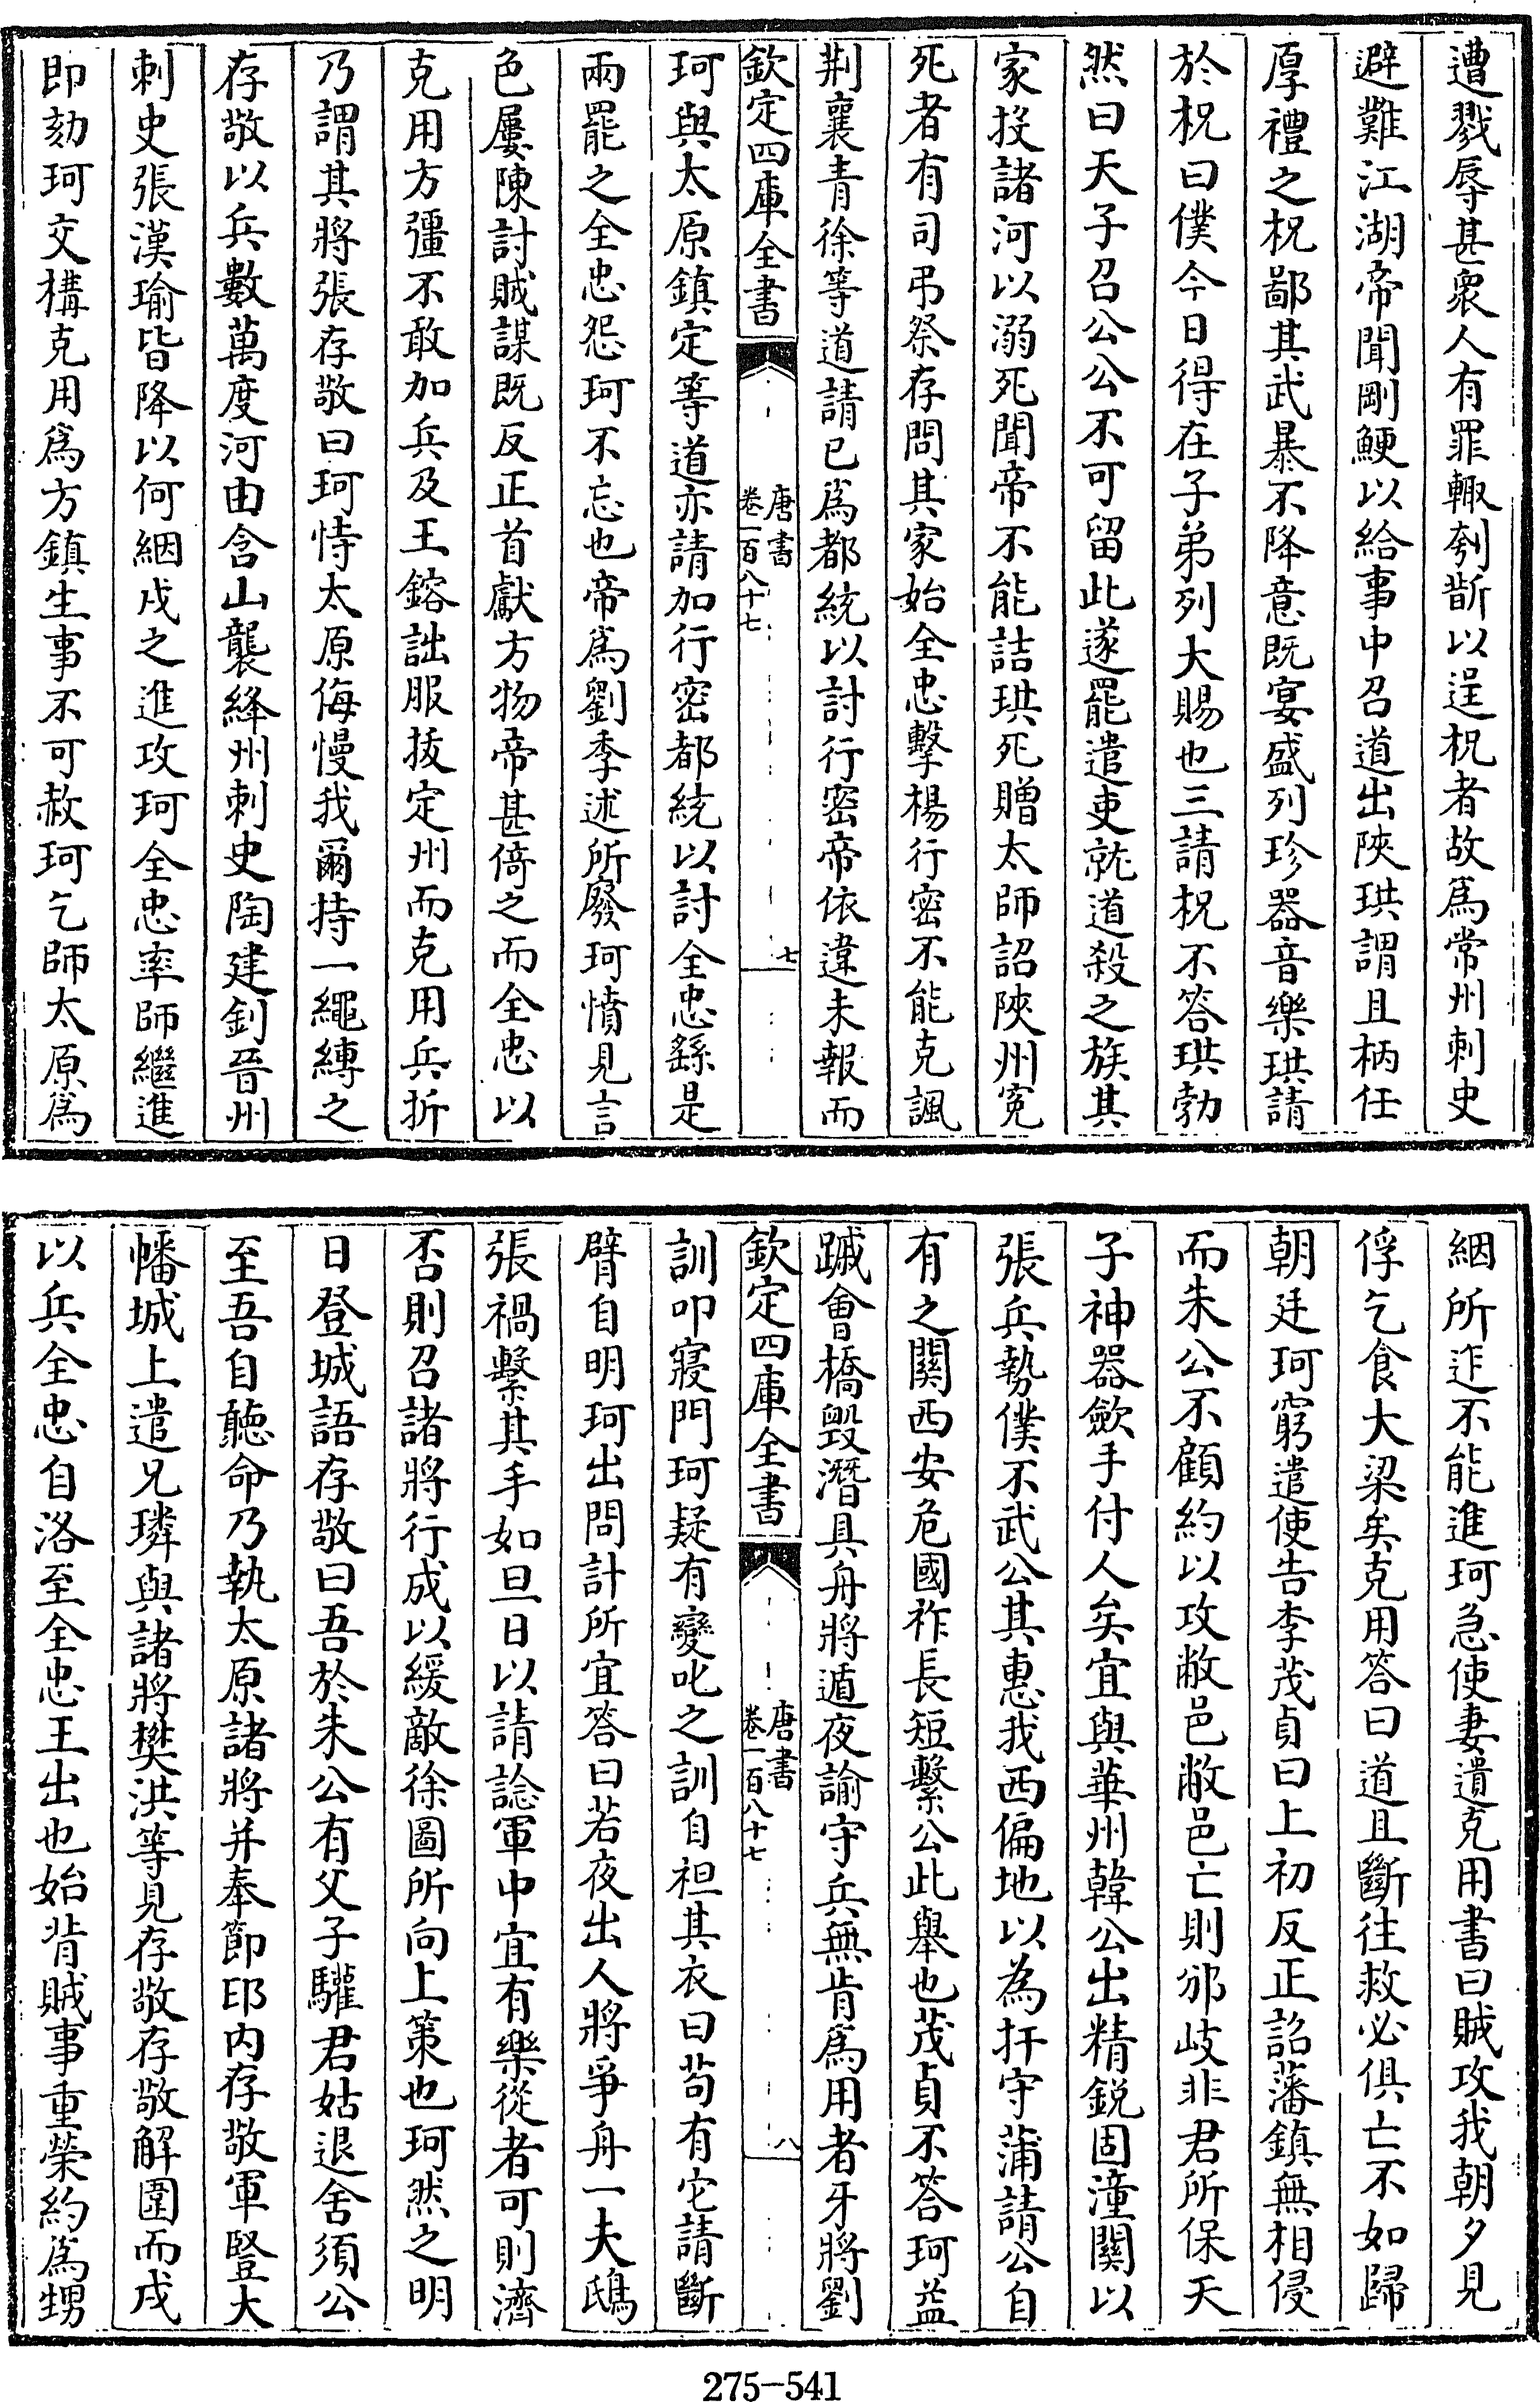 遭戮辱甚衆人有罪輙刳斮以逞柷者故爲常州刺史
避難江湖帝聞剛鯁以給事中召道出陜珙謂且柄任
厚禮之柷鄙其武暴不降意既宴盛列珍器音樂珙請
於柷曰僕今日得在子弟列大賜也三請柷不答珙勃
然曰天子召公公不可留此遂罷遣吏就道殺之族其
家投諸河以溺死聞帝不能詰珙死贈太師詔陜州寃
死者有司弔祭存問其家始全忠擊楊行密不能克諷
荆襄青徐等道請已爲都統以討行密帝依違未報而
欽定四庫全書
唐書
卷一百八十七
七
珂與太原鎮定等道亦請加行密都統以討全忠繇是
兩罷之全忠怨珂不忘也帝爲劉季述所廢珂憤見言
色屢陳討賊謀既反正首獻方物帝甚倚之而全忠以
克用方彊不敢加兵及王鎔詘服拔定州而克用兵折
乃謂其將張存敬曰珂恃太原侮慢我爾持一繩縛之
存敬以兵數萬度河由含山襲絳州刺史陶建釗晉州
刺史張漢瑜皆降以何絪戍之進攻珂全忠率師繼進
即劾珂交構克用爲方鎮生事不可赦珂乞師太原爲
絪所迮不能進珂急使妻遺克用書曰賊攻我朝夕見
俘乞食大梁矣克用答曰道且斷往救必俱亡不如歸
朝廷珂窮遣使告李茂貞曰上初反正詔藩鎮無相侵
而朱公不顧約以攻敝邑敝邑亡則邠岐非君所保天
子神器歛手付人矣宜與華州韓公出精鋭固潼關以
張兵勢僕不武公其惠我西偏地以為扞守蒲請公自
有之關西安危國祚長短繫公此舉也茂貞不答珂益
蹙會橋毁潛具舟將遁夜諭守兵無肯爲用者牙將劉
欽定四庫全書
唐書
卷一百八十七
八
訓叩寢門珂疑有變叱之訓自袒其衣曰苟有它請斷
臂自明珂出問計所宜答曰若夜出人將爭舟一夫鴟
張禍繫其手如旦日以請諗軍中宜有樂從者可則濟
否則召諸將行成以緩敵徐圖所向上策也珂然之明
日登城語存敬曰吾於朱公有父子驩君姑退舍須公
至吾自聽命乃執太原諸將并奉節印内存敬軍豎大
幡城上遣兄璘與諸將樊洪等見存敬存敬解圍而戍
以兵全忠自洛至全忠王出也始背賊事重榮約爲甥
275-541